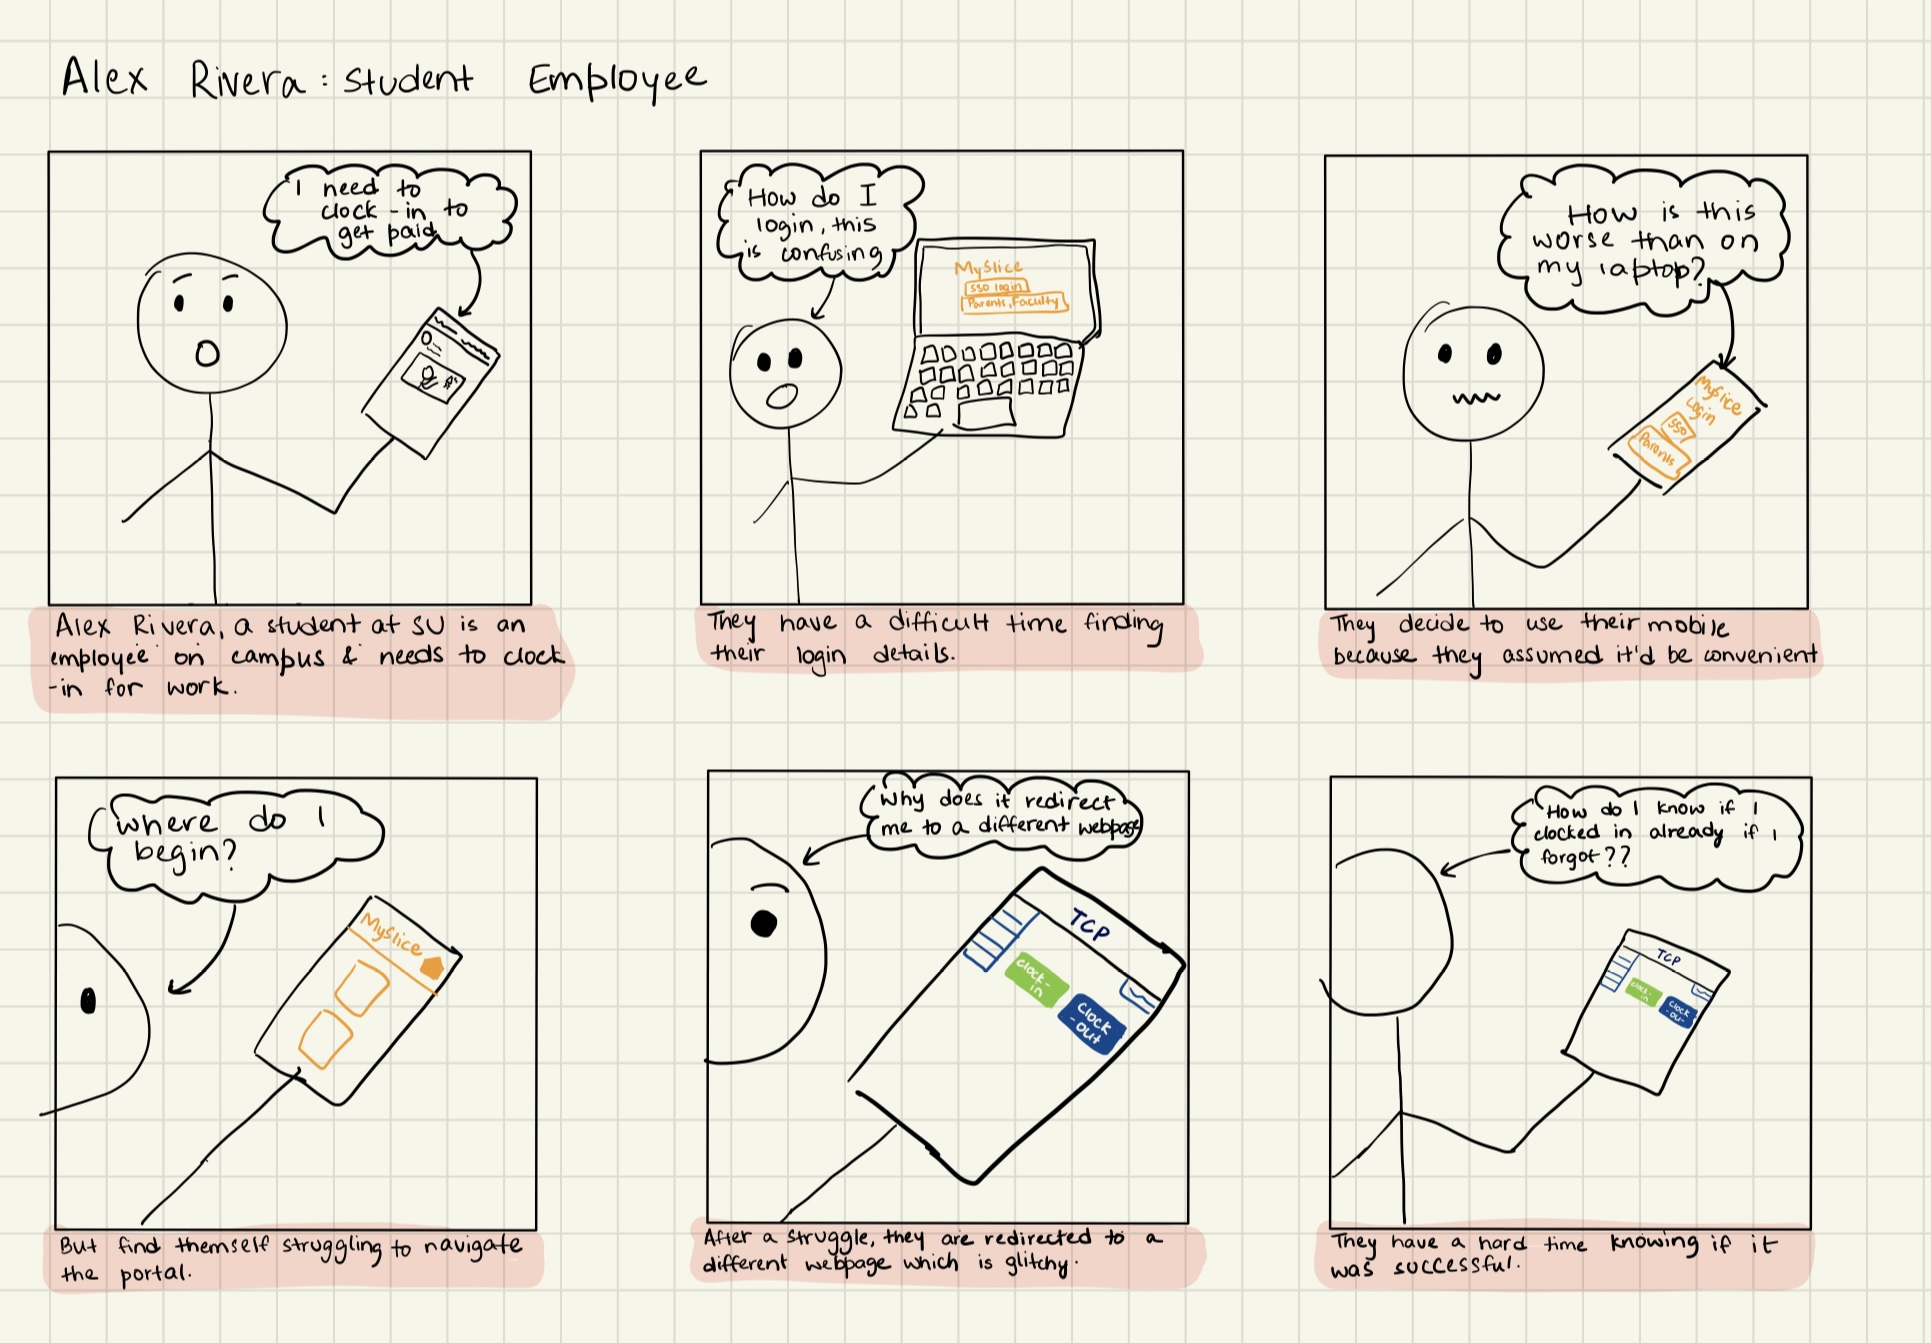 Alex Rivera: Student Employee
I need to
clock-in to
get paid
Alex Rivera, a student at SU is an
employee on campus & needs to clock
-in for work.
How do I
login, this
is confusing
MySlice
SSO login
Parents, Faculty
They have a difficult time finding
their login details.
How is this
worse than on
my laptop?
MySlice
Login
SSO
Parents
They decide to use their mobile
because they assumed it'd be convenient
Where do I
begin?
MySlice
But find themself struggling to navigate
the portal.
Why does it redirect
me to a different webpage
TCP
Clock-
in
Clock
-out
After a struggle, they are redirected to a
different webpage which is glitchy.
How do I know if I
clocked in already if I
forgot??
TCP
Clock-
in
Clock
-out
They have a hard time knowing if it
was successful.